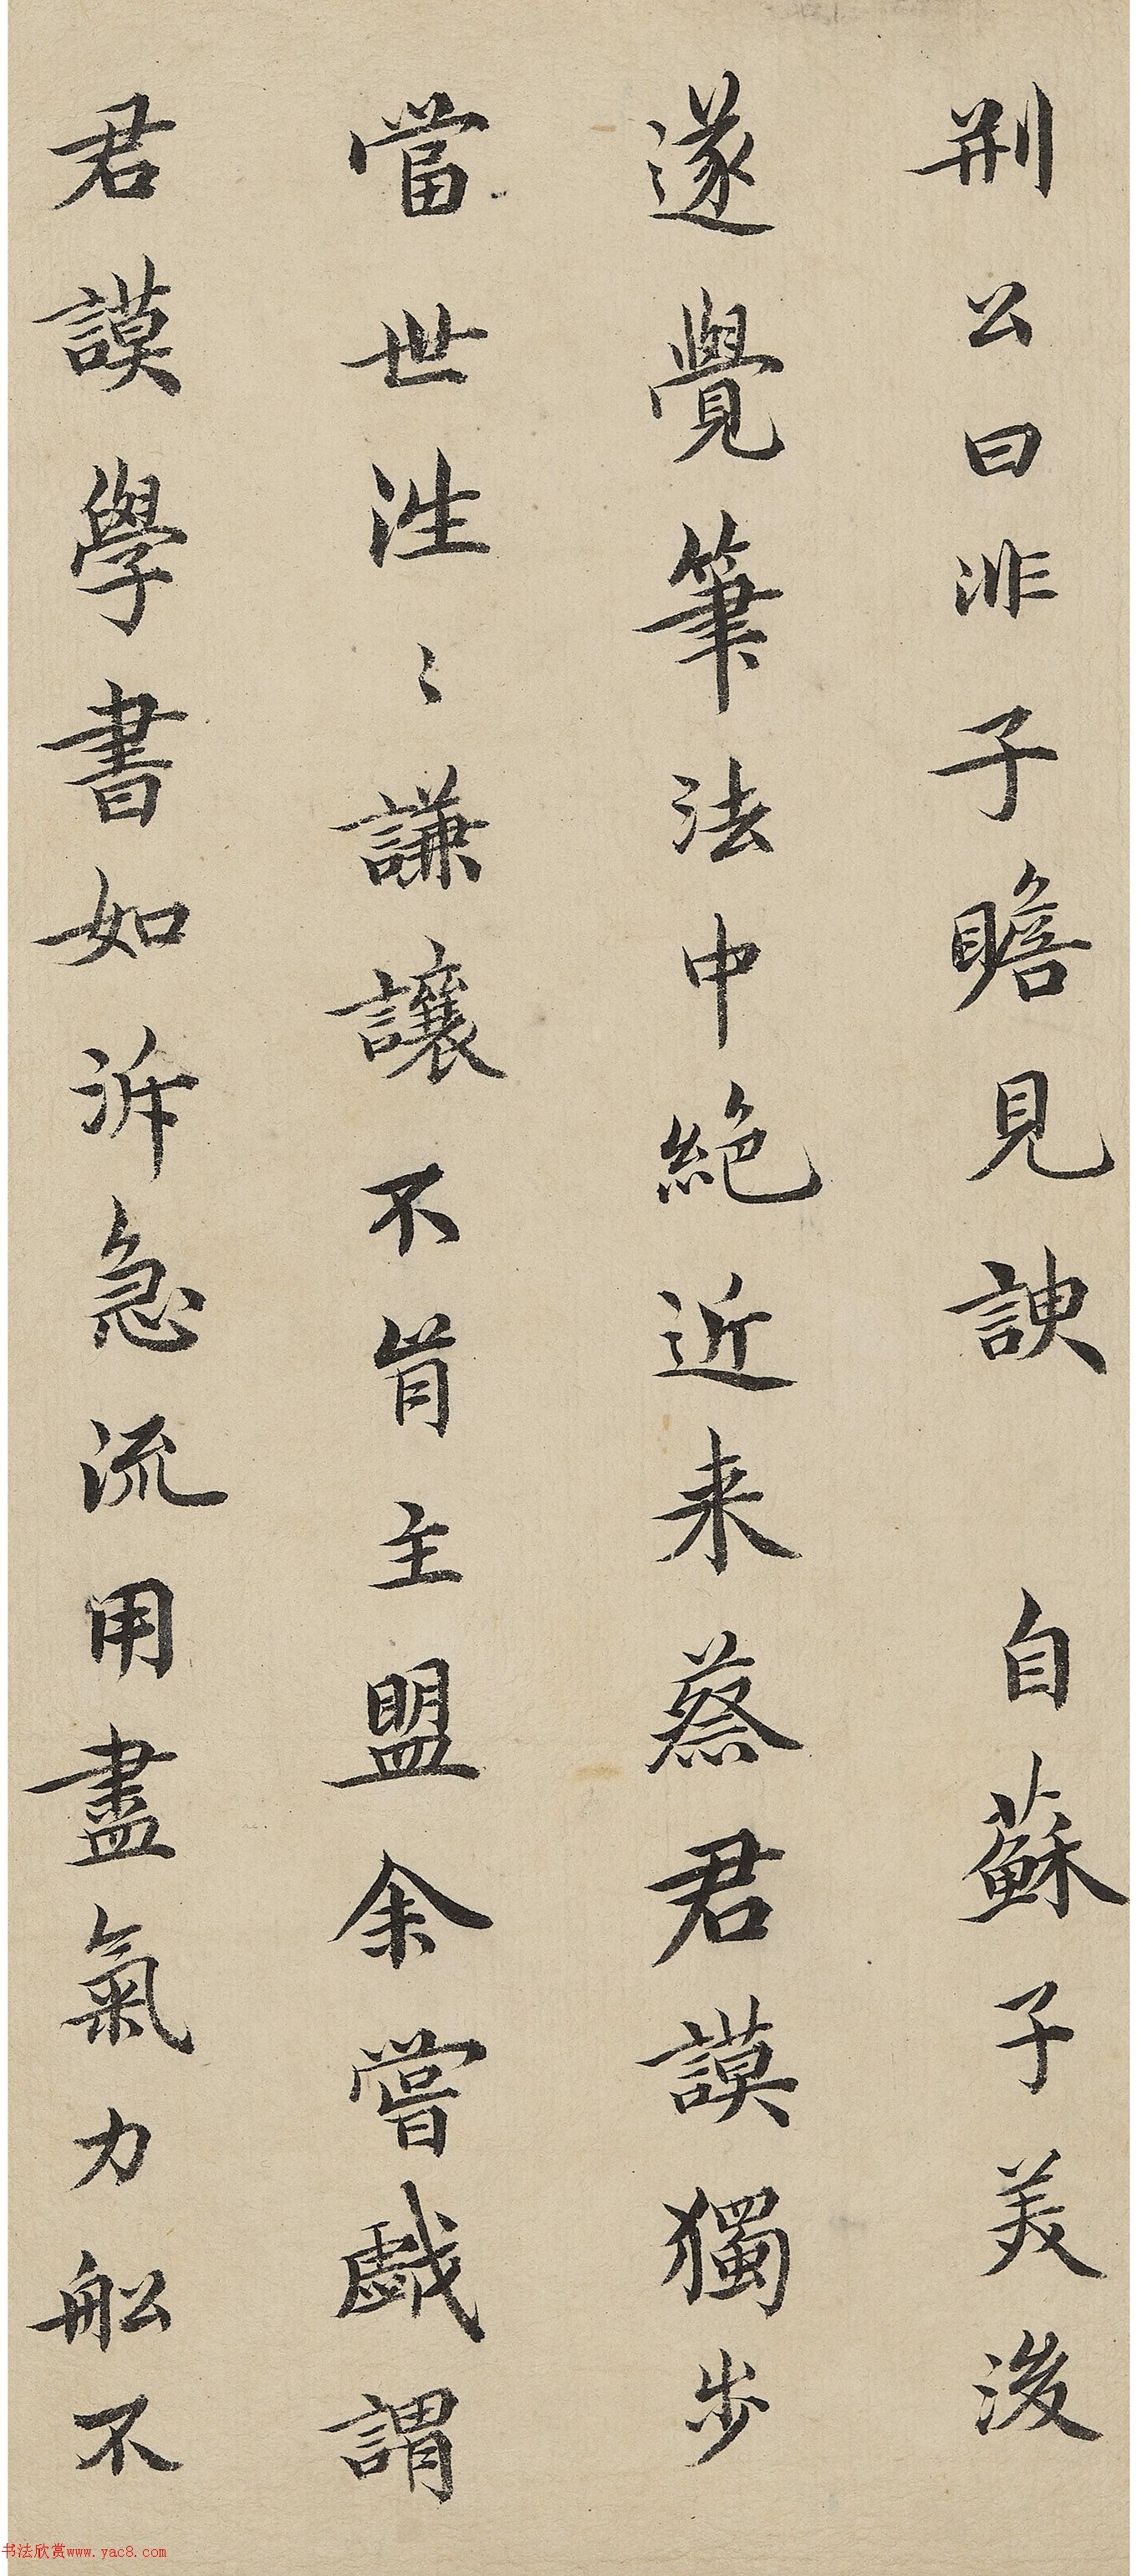 荆公曰非子瞻見諛　自蘇子美後
遂覺筆法中絕近来蔡君謨獨步
當世往〻謙讓不肯主盟余嘗戲謂
君謨學書如泝急流用盡氣力船不
书法欣赏www.yac8.com